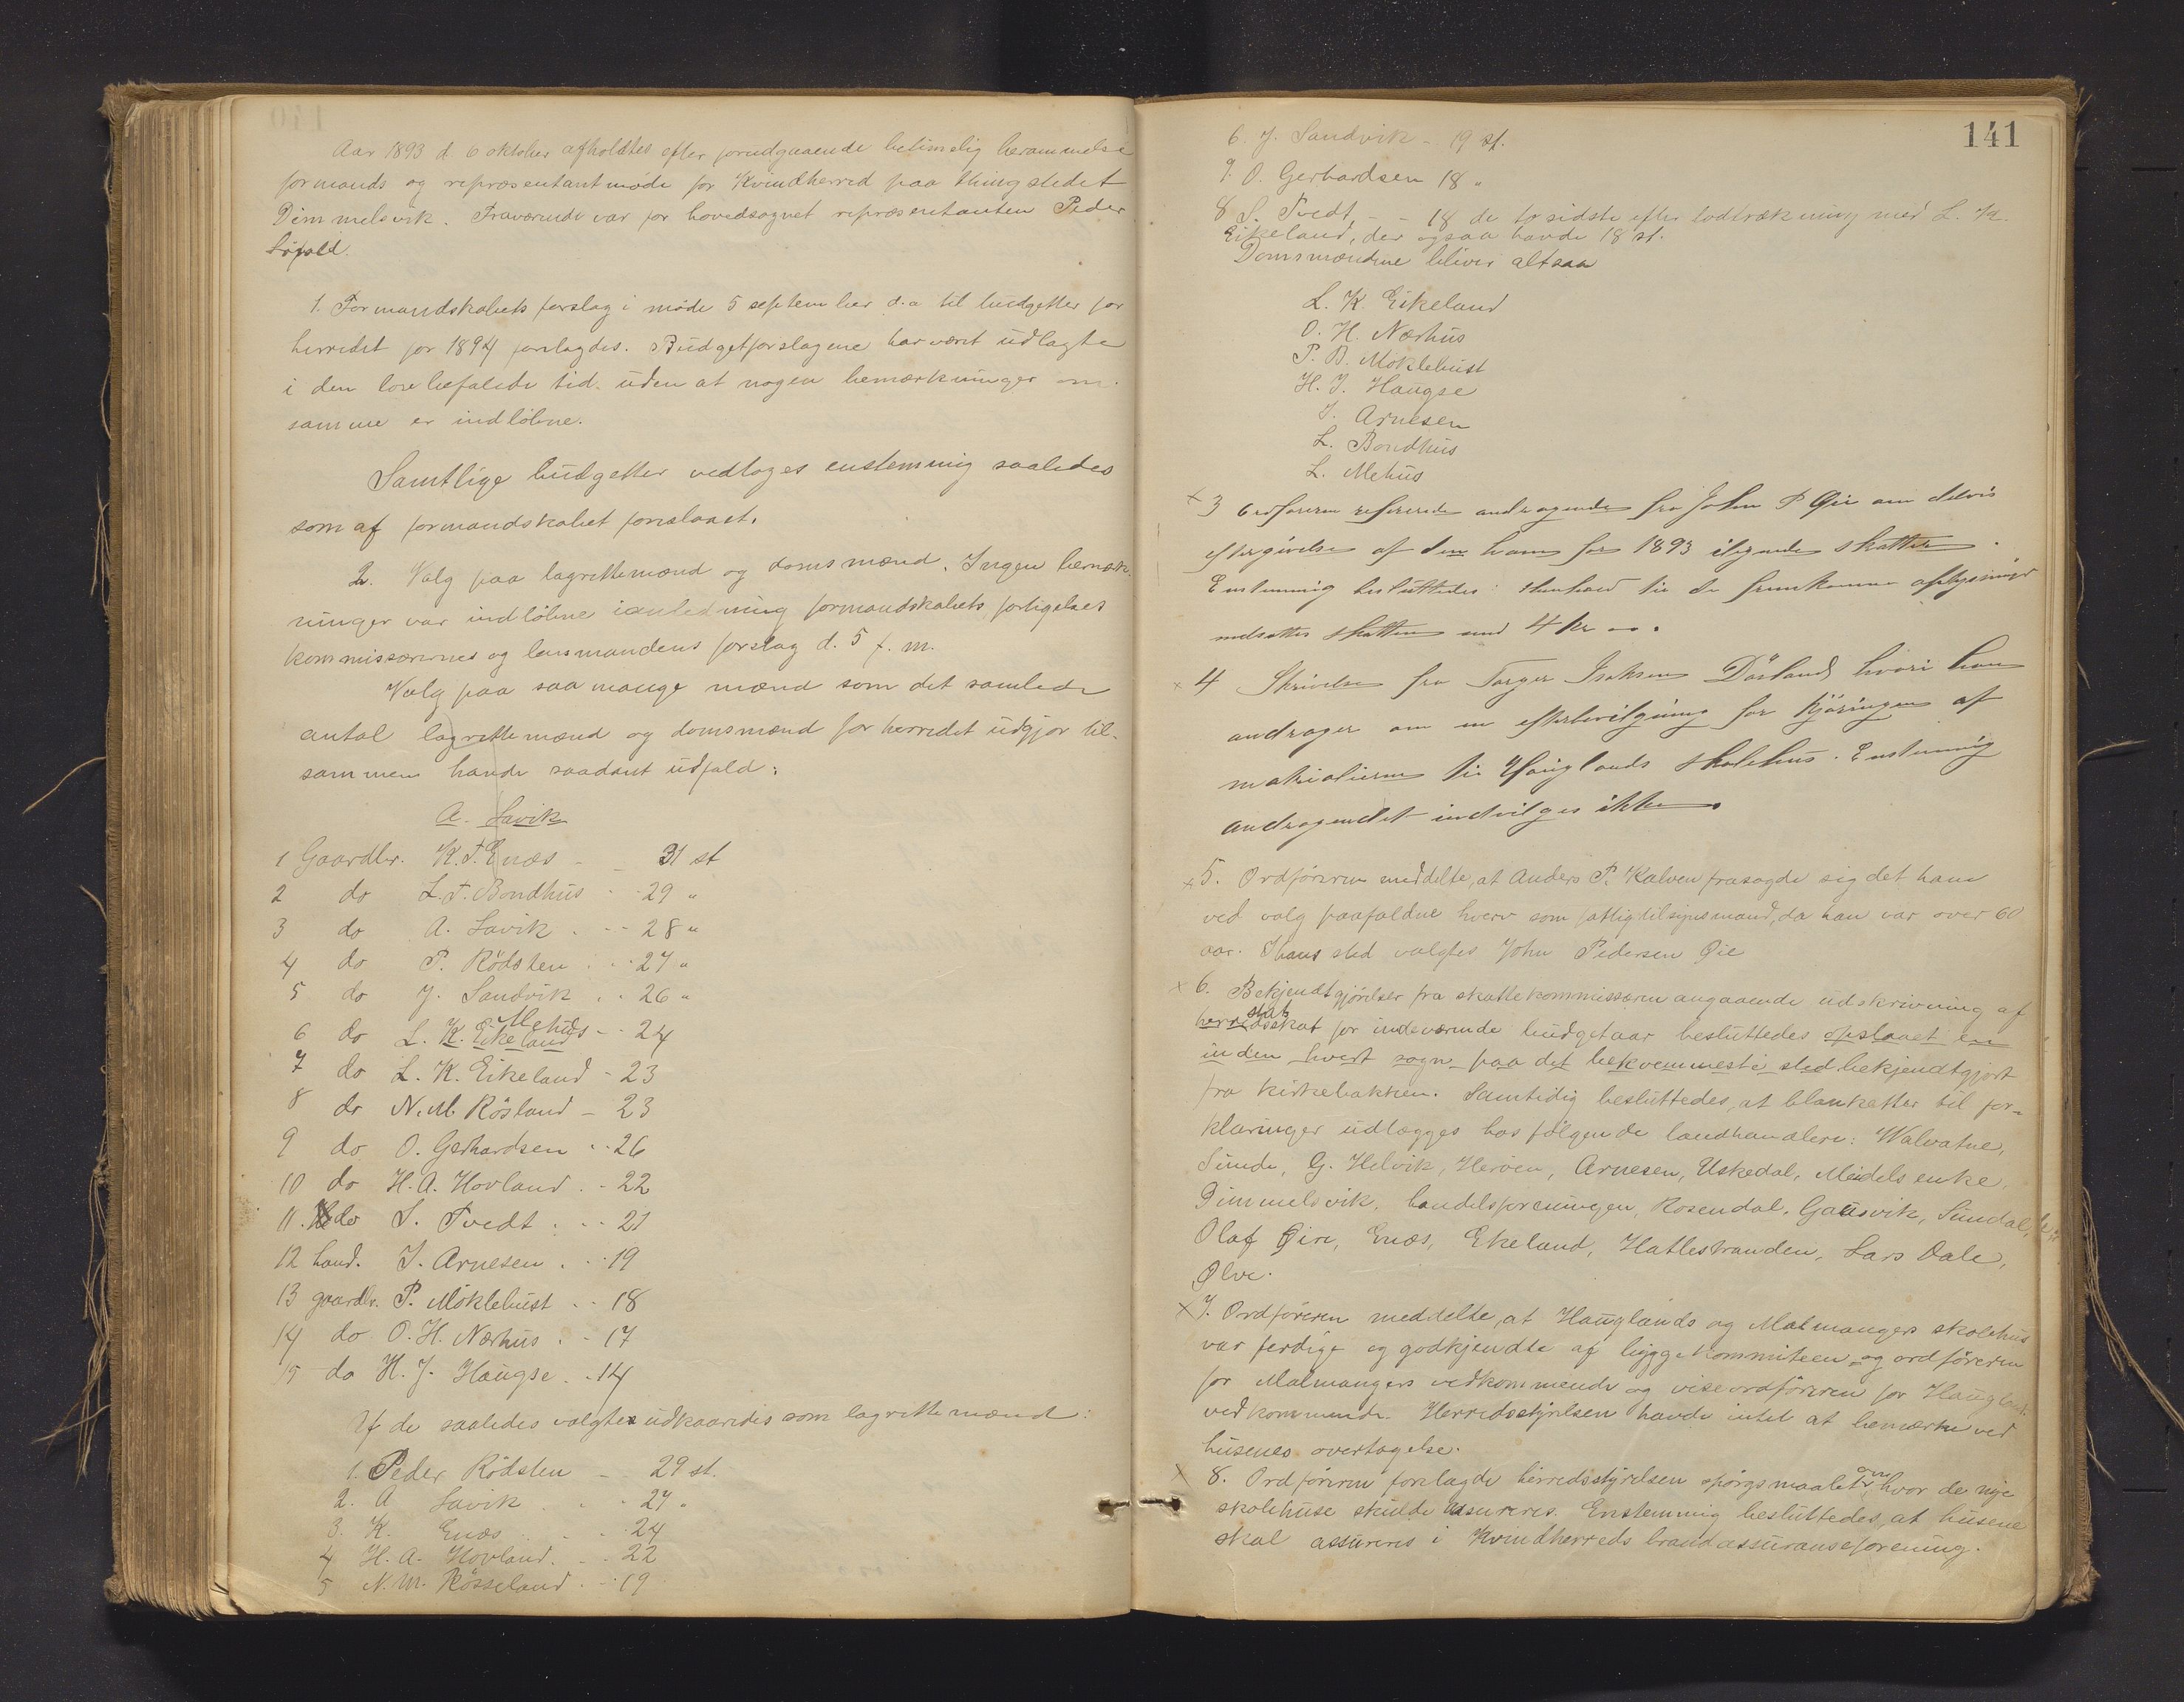 Aar 1893 d. 6 oktober afholdtes efter forudgaaende betimelig berammelse
formands og repræsentantmøde for Kvindherred paa thingstedet
Dimmelsvik. Fraværende var for hovedsognet repræsentanten Peder
Löfald.
1. Formandskabets forslag i møde 5 september d.a til budgetter for
herredet for 1894 forelagdes. Budgetforslagene har været udlagte
i den lovbefalede tid uden at nogen bemærkninger om
samme er indløbne.
Samtlige budgetter vedtoges enstemmig saaledes
som af formandskabet foreslaaet.
2. Valg paa lagrettemænd og domsmænd. Ingen bemærk-
ninger var indløbne ianledning formandskabets, forligelses
kommissærernes og lensmandens forslag d. 5 f. m.
Valg paa saa mange mænd som det samlede
antal lagrettemænd og domsmænd for herredet udgjør til-
sammen havde saadant udfald:
A. Savik
1 Gaardbr. K. T. Enæs - 31 st
2 do L. T. Bondhus - - 29 "
3 do A. Savik . - - 28 "
4 do P. Rödsten . - - 27 "
5 do J. Sandvik . - 26 "
6 do L. K. Eikeland Mehus - - 24
7 do L. K. Eikeland - 23
8 do N. M. Rösland - 23
9 do O. Gerhardsen - - 26
10 do H. A. Hovland . - 22
11. do S. Tvedt . - - 21
12 hand. J. Arnesen . - 19
13 gaardbr. P. Moklebust . - 18
14 do O. H. Nærhus . - 17
15 do H. J. Haugse . - 14
Af de saaledes valgte udkaaredes som lagrettemænd:
1. Peder Rödsten - 29 st.
2. A Savik . . - 27 "
3. K. Enæs . . - 24
4 H. A. Hovland . - 22
5 N. M. Rösseland . - 19
141
6. J. Sandvik - 19 st.
7. O. Gerhardsen 18 "
8 S. Tvedt, - - 18 de to sidste efter lodtrækning med L. K.
Eikeland, der ogsaa havde 18 st.
Domsmændene bliver altsaa
L. K. Eikeland
O. H. Nærhus
P. B. Moklebust
H. J. Haugse
J. Arnesen
L. Bondhus
L. Mehus
x 3 Ordføreren refererede andragende fra John P Øie om delvis
eftergivelse af den ham for 1893 ilignede skatter.
Enstemmig besluttedes: ihenhold til de fremkomne oplysninger
nedsættes skatten med 4 kr.
x 4 Skrivelse fra Torger Isaksen Döslands hvori han
andrager om en efterbevilgning for kjöringen af
materialierne til Hauglands skolehus. Enstemmig
andragendet indvilges ikke.
x 5. Ordføreren meddelte, at Anders P. Kalven frasagde sig det ham
ved valg paafaldne hverv som fattigtilsynsmand, da han var over 60
aar. I hans sted valgtes John Pedersen Øie
x 6. Bekjendtgjörelser fra skattekommissæren angaaende udskrivning af
stats
herredsskat for indeværende budgetaar besluttedes opslaaet en
inden hvert sogn paa det bekvemmeste sted bekjendtgjort
fra kirkebakken. Samtidig besluttedes, at blanketter til for-
klaringer udlægges hos følgende landhandlere: Walvatne,
Sunde, G. Helvik, Herøen, Arnesen, Uskedal, Meidels enke,
Dimmelsvik, handelsforeningen, Rosendal, Gausvik, Sundal,
Olaf Øien, Enæs, Ekeland, Hatlestranden, Lars Dale,
Ølve.
x 7. Ordføreren meddelte, at Hauglands og Malmangers skolehus
var ferdige og godkjendte af byggekommiteen og ordføreren
for Malmangers vedkommende og viseordføreren for Hauglands
vedkommende. Herredsstyrelsen havde intet at bemærke ved
husenes overtagelse.
x 8. Ordføreren forelagde herredsstyrelsen spørgsmaalet om, hvor de nye
skolehuse skulde assureres. Enstemmig besluttedes, at husene
skal assureres i Kvindherreds brandassuranseforening.